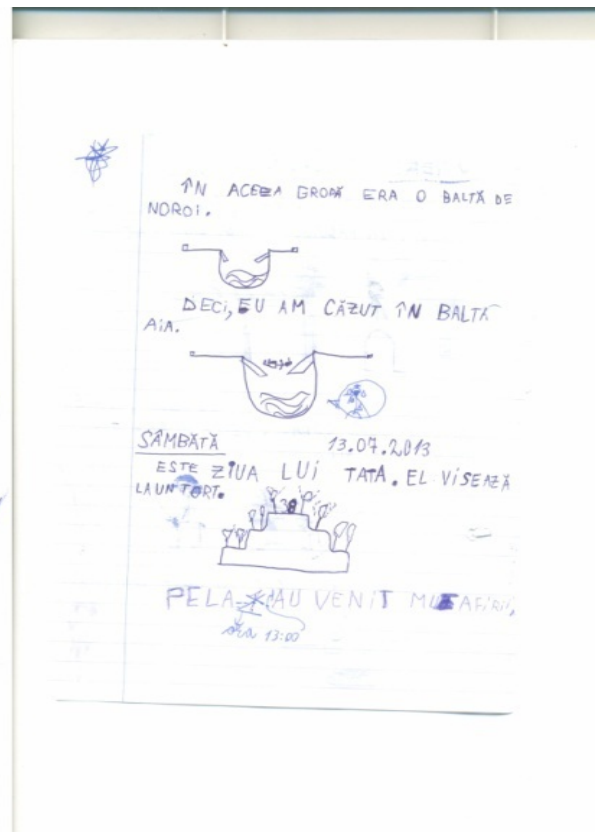 ÎN ACEEA GROPĂ ERA O BALTĂ DE
NOROI.
DECI, EU AM CĂZUT ÎN BALTA
AIA.
SÂMBĂTĂ 13.07.2013
ESTE ZIUA LUI TATA. EL VISEAZĂ
LA UN TORT.
PE LA AU VENIT MUSAFIRII,
ora 13:00